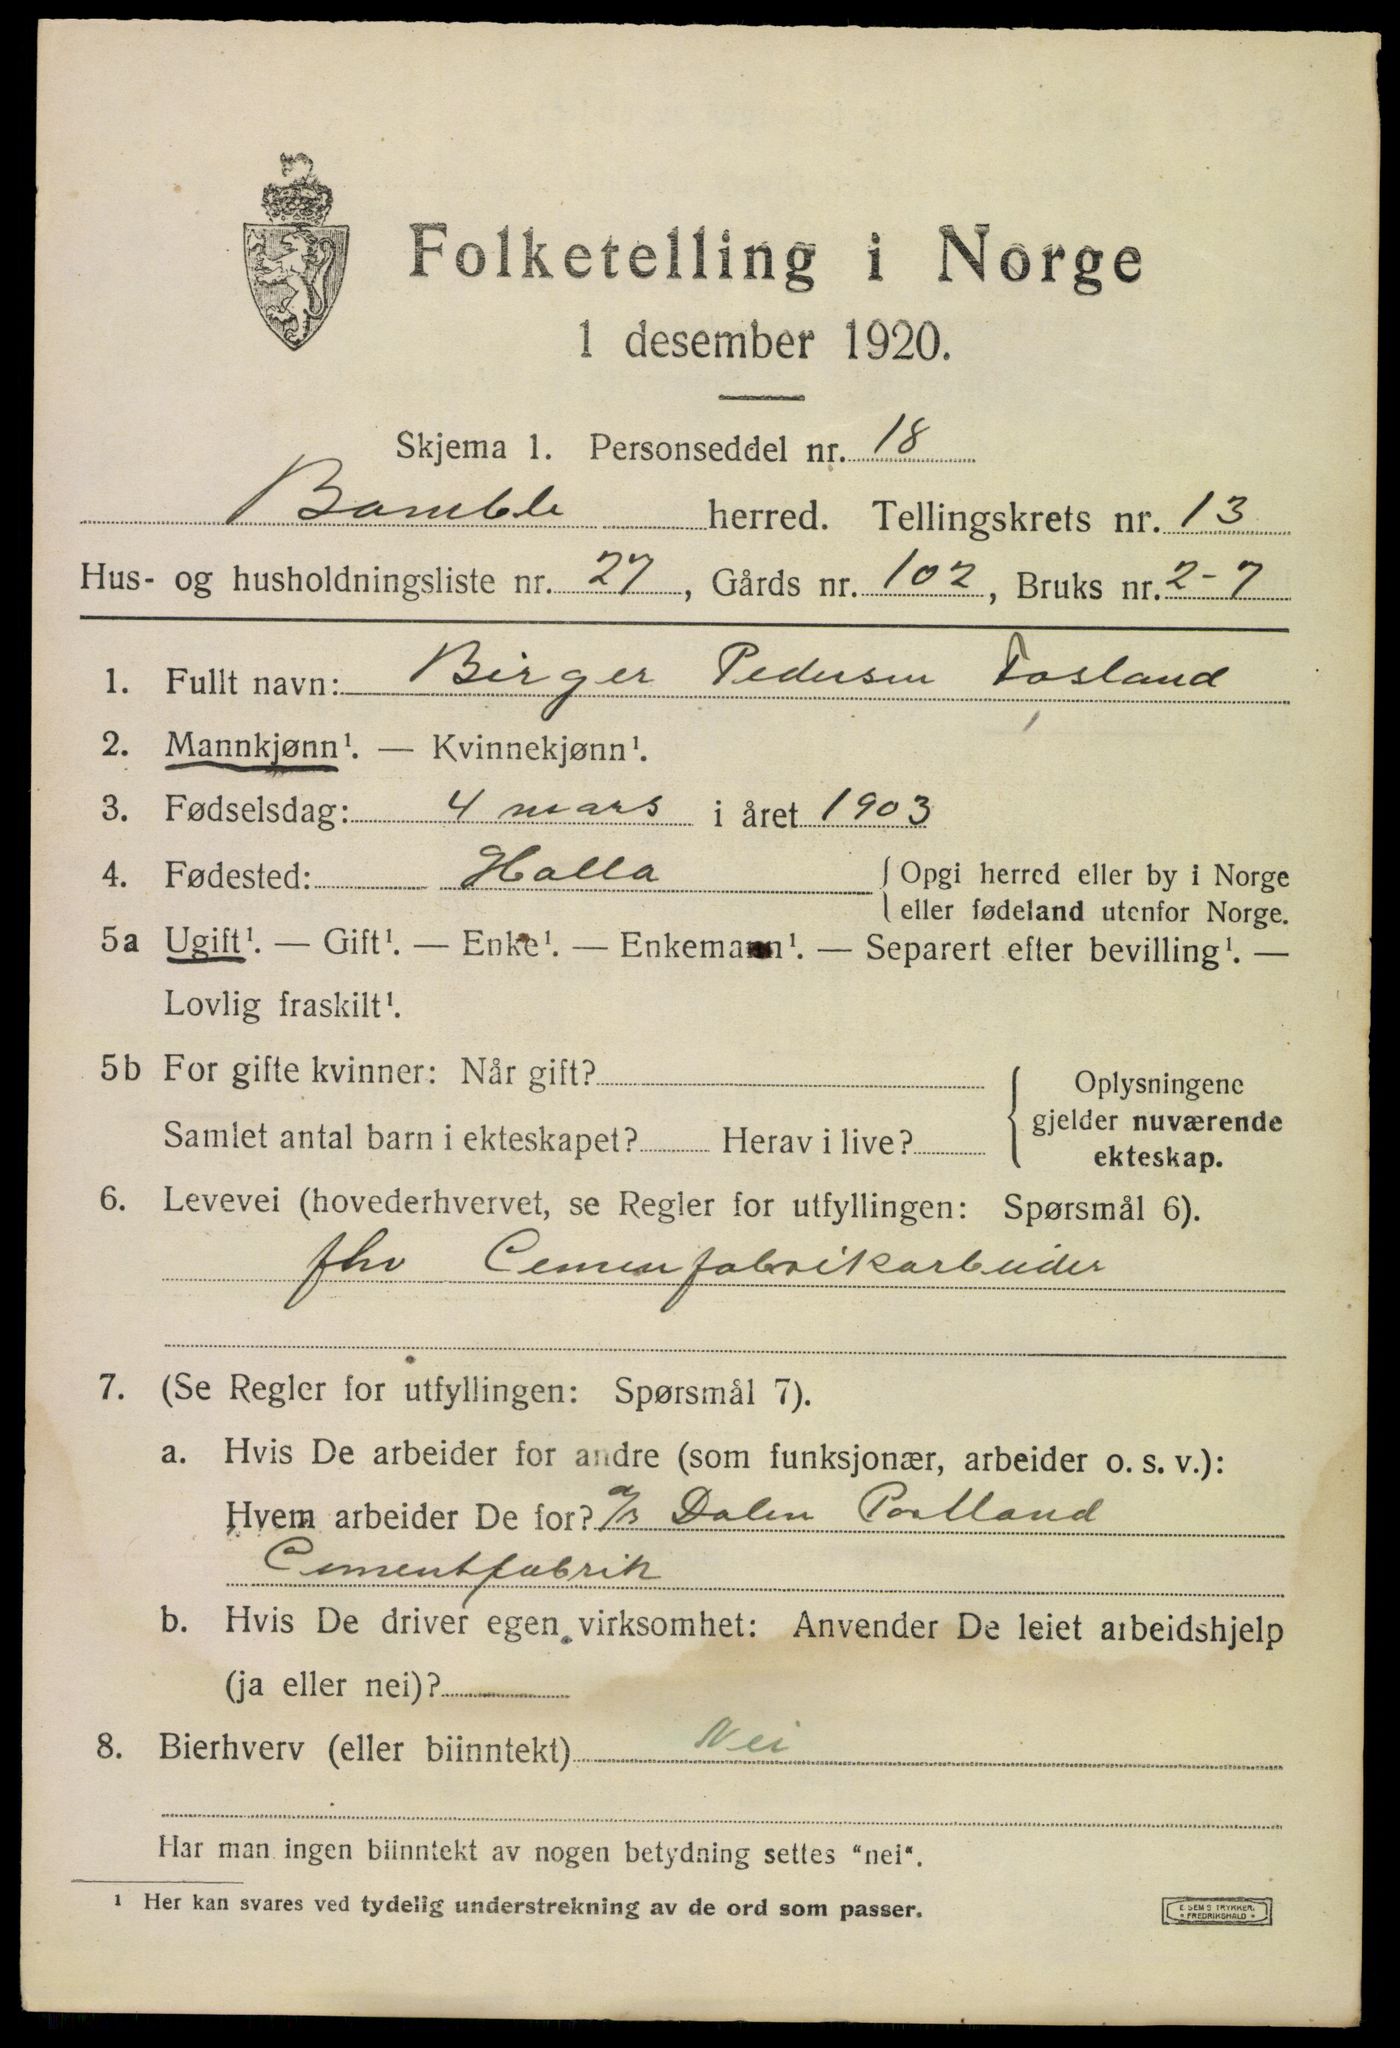 Folketelling i Norge
1 desember 1920.
Skjema 1. Personseddel nr. 18
Bamble herred. Tellingskrets nr. 13
Hus- og husholdningsliste nr. 27, Gårds nr. 102, Bruks nr. 2-7
1. Fullt navn: Birger Pedersen Fosland
2. Mannkjønn¹. — Kvinnekjønn¹.
3. Fødselsdag: 4 mars i året 1903
4. Fødested: Holla { Opgi herred eller by i Norge
eller fødeland utenfor Norge.
5a Ugift¹. — Gift¹. — Enke¹. — Enkemann¹. — Separert efter bevilling¹. —
Lovlig fraskilt¹.
5b For gifte kvinner: Når gift?
Samlet antal barn i ekteskapet? Herav i live?
{ Oplysningene
gjelder nuværende
ekteskap.
6. Levevei (hovederhvervet, se Regler for utfyllingen: Spørsmål 6).
fhv Cemenfabrikarbeider
7. (Se Regler for utfyllingen: Spørsmål 7).
a. Hvis De arbeider for andre (som funksjonær, arbeider o. s. v.):
Hvem arbeider De for? a/s Dalen Portland
Cementfabrik
b. Hvis De driver egen virksomhet: Anvender De leiet arbeidshjelp
(ja eller nei)?
8. Bierhverv (eller biinntekt) Nei
Har man ingen biinntekt av nogen betydning settes "nei".
¹ Her kan svares ved tydelig understrekning av de ord som passer.
E. SEMS TRYKKERI.
• FREDRIKSHALD •